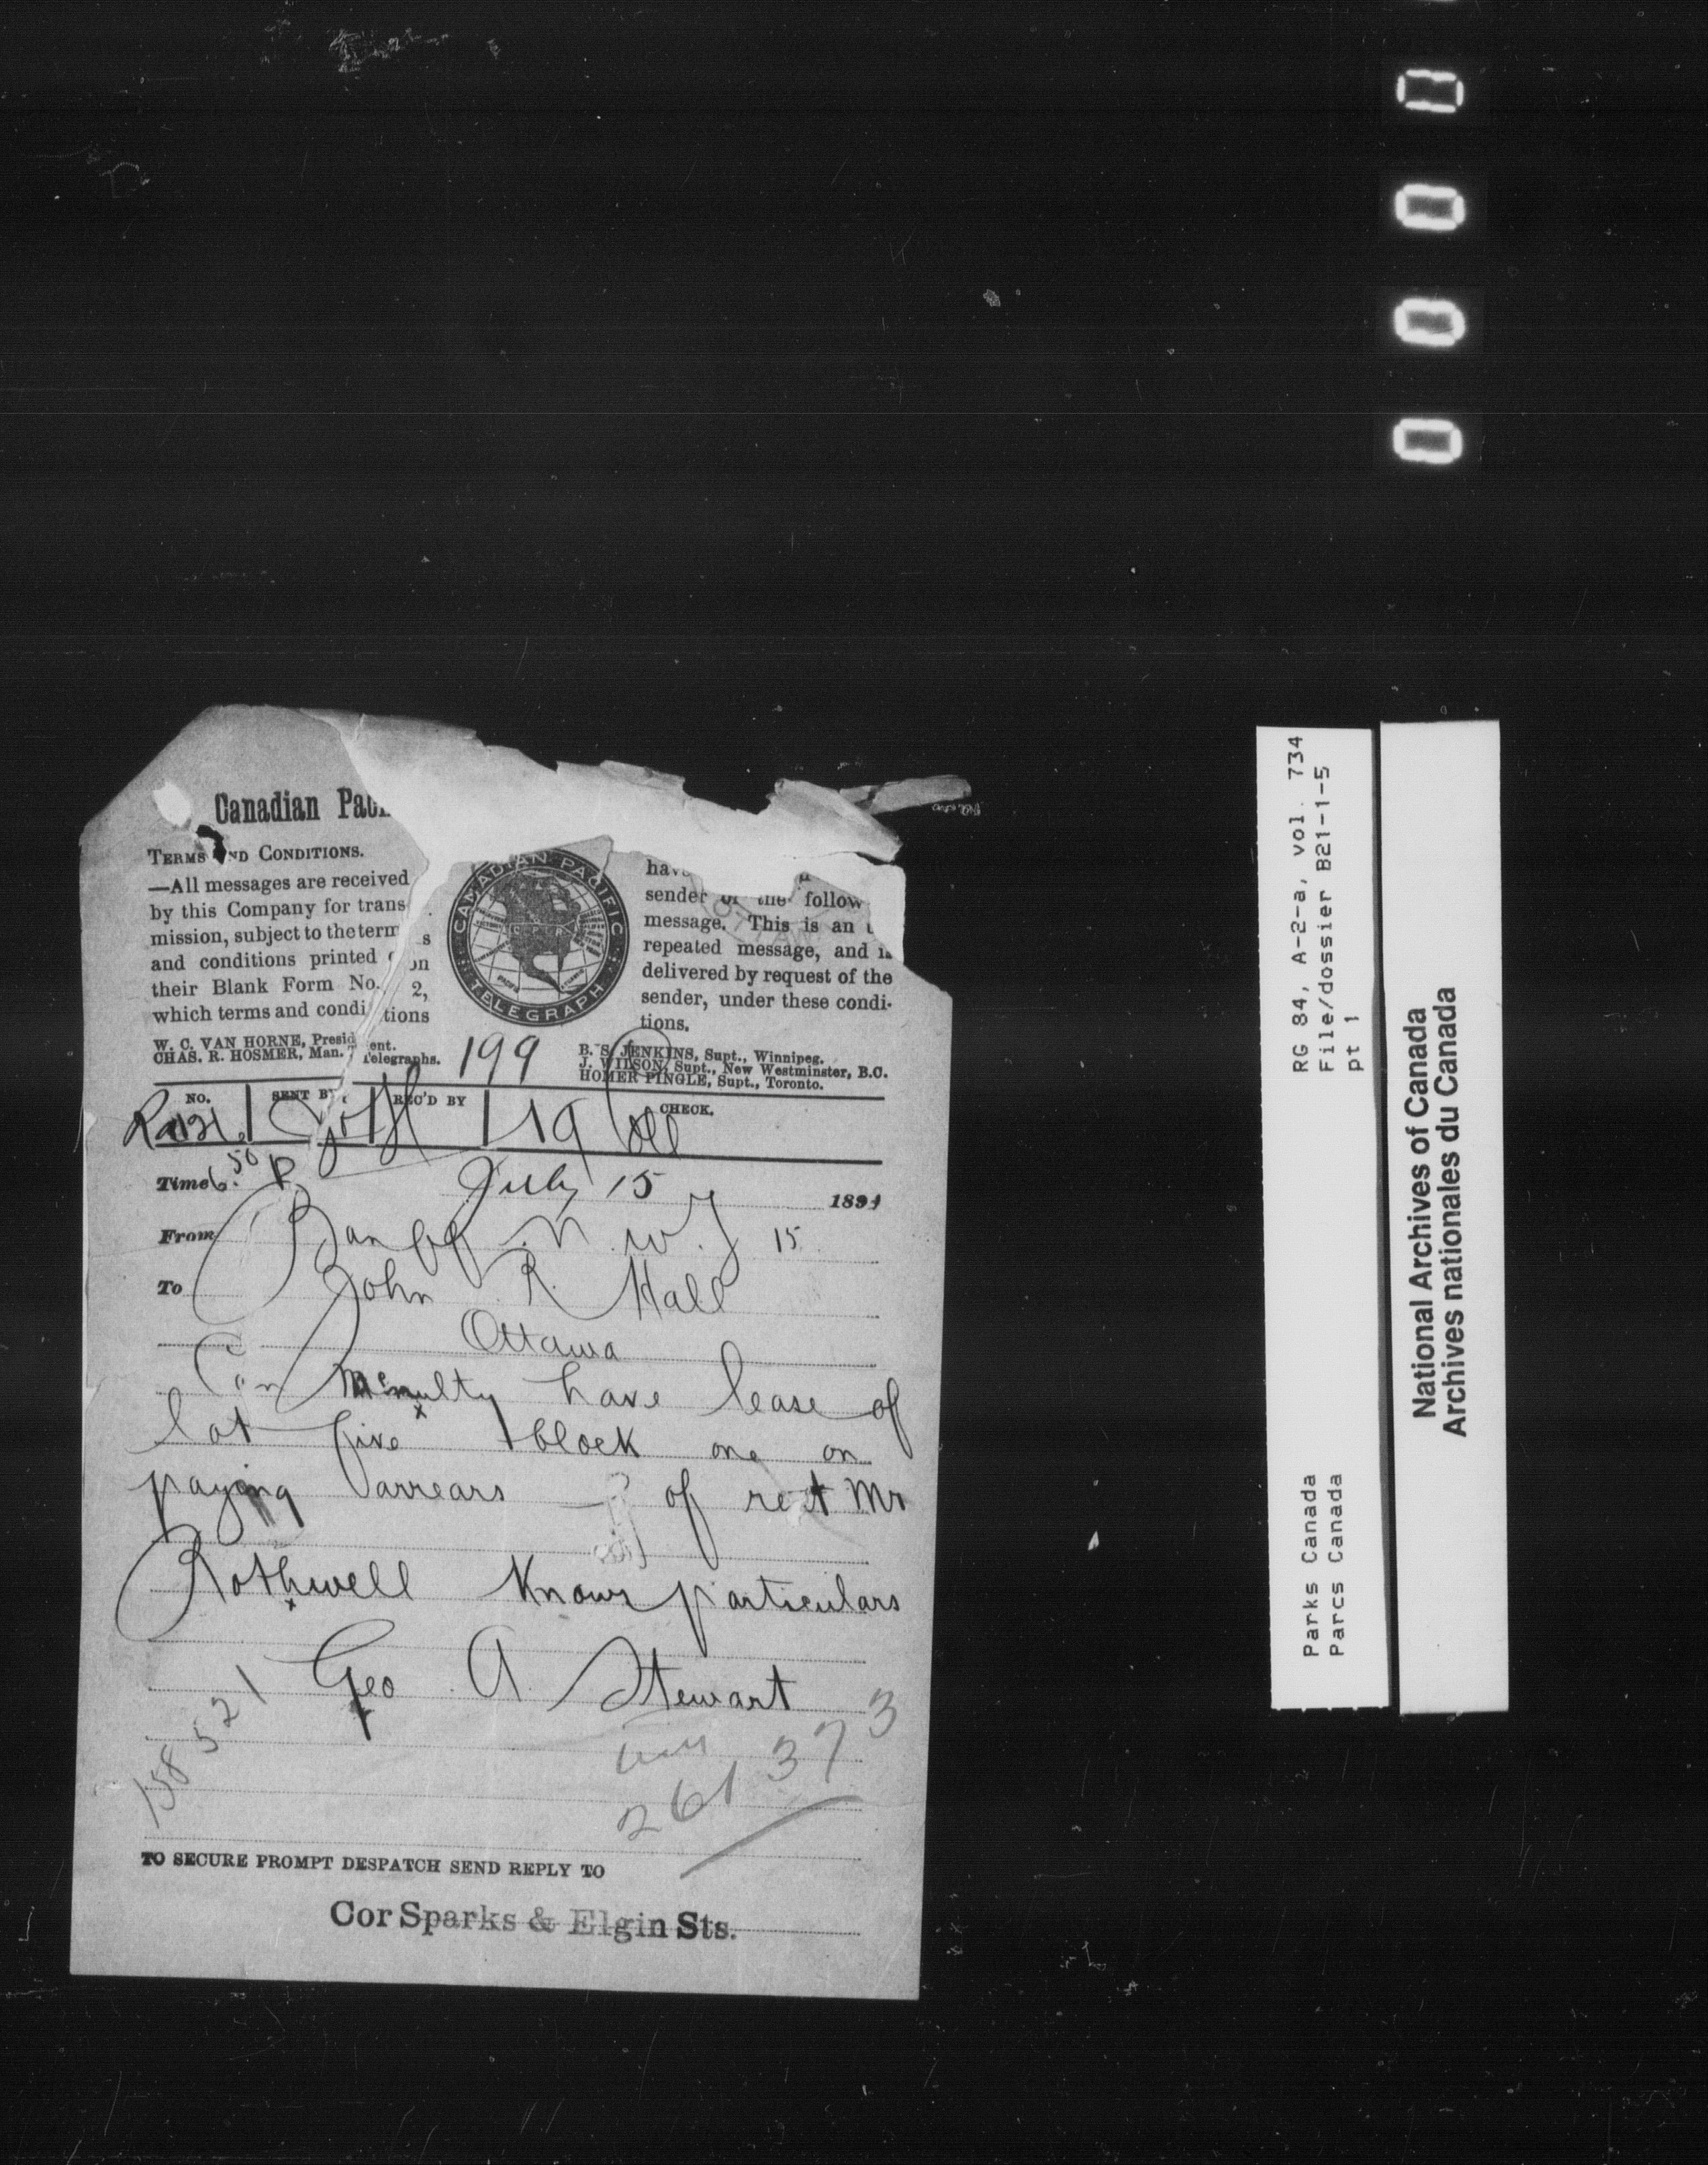 0000
Canadian Paci
TERMS AND CONDITIONS.
—All messages are received
by this Company for trans-
mission, subject to the terms
and conditions printed on
their Blank Form No. 2,
which terms and conditions
CANADIAN PACIFIC
C.P.R.
TELEGRAPH
have
sender of the follow
message. This is an
repeated message, and is
delivered by request of the
sender, under these condi-
tions.
OTTAWA
W. C. VAN HORNE, President.
CHAS. R. HOSMER, Man. Telegraphs.
199
B. S. JENKINS, Supt., Winnipeg.
J. WILSON, Supt., New Westminster, B.C.
HOMER PINGLE, Supt., Toronto.
NO. SENT BY REC'D BY CHECK.
19
Time 6.50 P. July 15 1891
From Banff N.W.T 15
To John R. Hall
Ottawa
Can McNulty have lease of
lot five block one on
paying arrears of rent Mr
Rothwell Knows particulars
Geo A. Stewart
158521
261373
TO SECURE PROMPT DESPATCH SEND REPLY TO
Cor Sparks & Elgin Sts.
RG 84, A-2-a, vol. 734
File/dossier B21-1-5
pt 1
Parks Canada
Parcs Canada
National Archives of Canada
Archives nationales du Canada